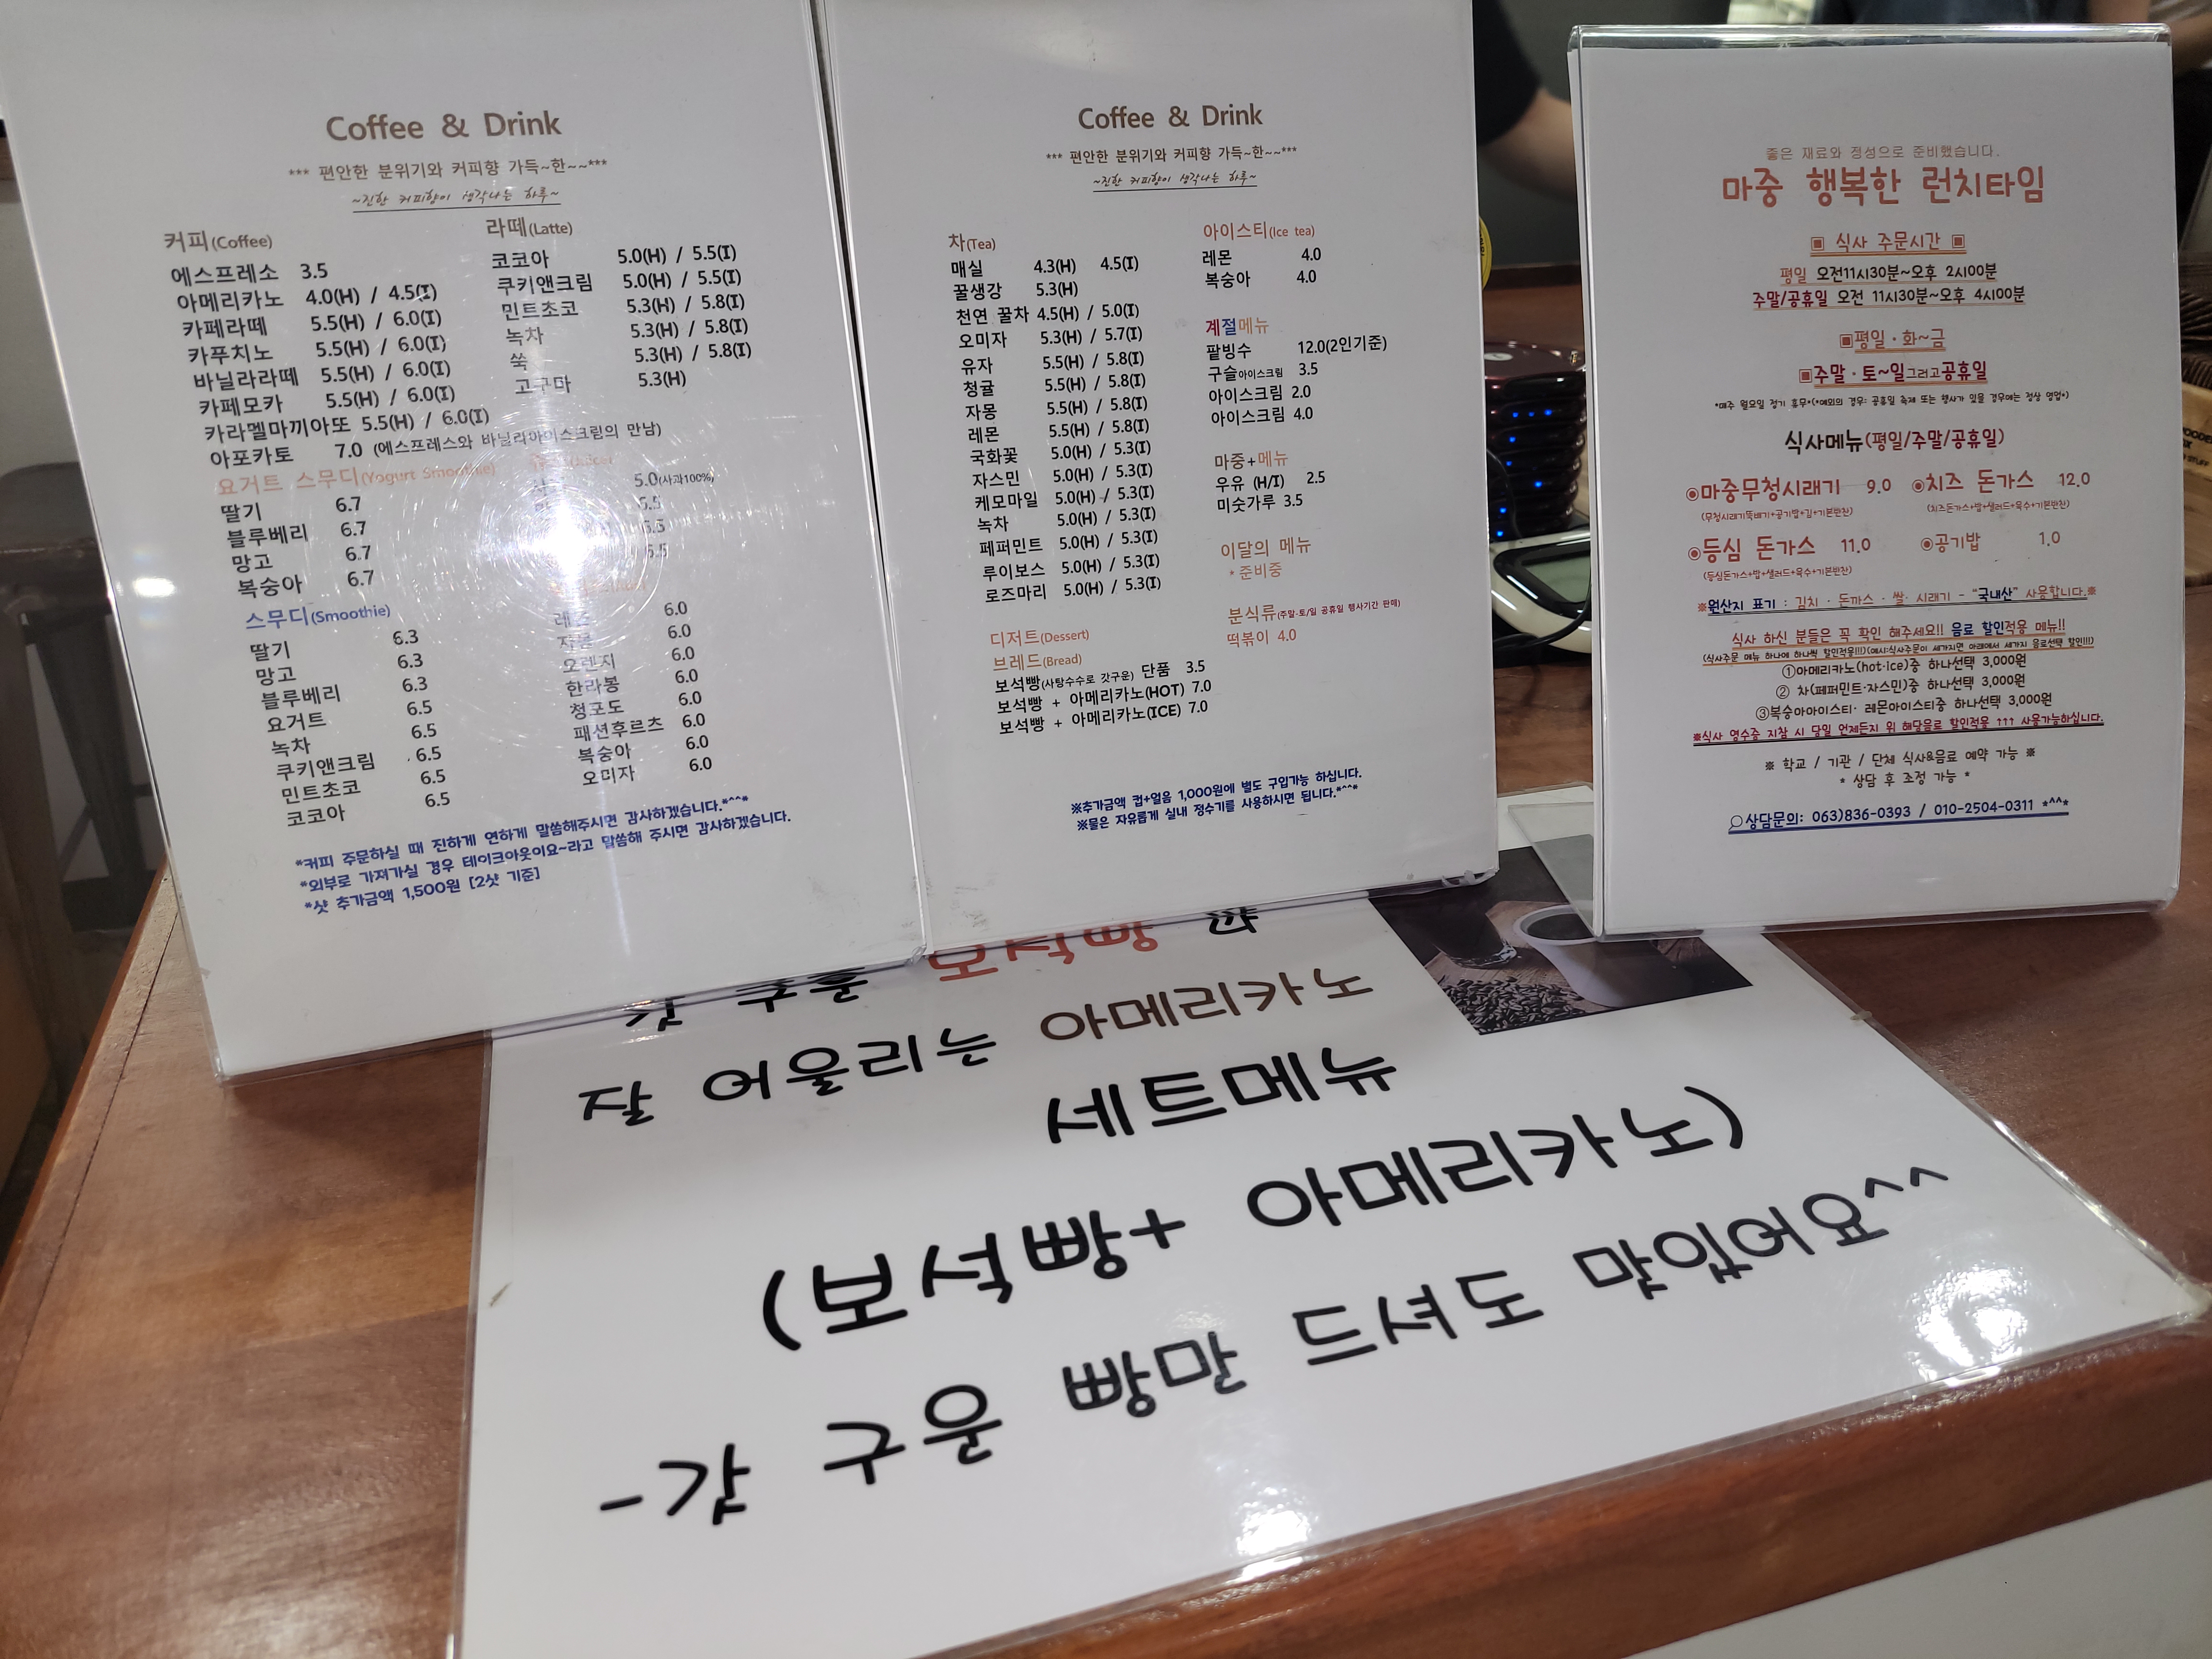 Coffee & Drink
*** 편안한 분위기와 커피향 가득~한~~***
~진한 커피향이 생각나는 하루~
커피(Coffee)
에스프레소 3.5
아메리카노 4.0(H) / 4.5(I)
카페라떼 5.5(H) / 6.0(I)
카푸치노 5.5(H) / 6.0(I)
바닐라라떼 5.5(H) / 6.0(I)
카페모카 5.5(H) / 6.0(I)
카라멜마끼아또 5.5(H) / 6.0(I)
아포카토 7.0 (에스프레스와 바닐라아이스크림의 만남)
라떼(Latte)
코코아 5.0(H) / 5.5(I)
쿠키앤크림 5.0(H) / 5.5(I)
민트초코 5.3(H) / 5.8(I)
녹차 5.3(H) / 5.8(I)
쑥 5.3(H) / 5.8(I)
고구마 5.3(H)
요거트 스무디(Yogurt Smoothie)
딸기 6.7
블루베리 6.7
망고 6.7
복숭아 6.7
스무디(Smoothie)
딸기 6.3
망고 6.3
블루베리 6.3
요거트 6.5
녹차 6.5
쿠키앤크림 6.5
민트초코 6.5
코코아 6.5
5.0(사과100%)
6.5
6.5
6.5
6.0
6.0
오렌지 6.0
한라봉 6.0
청포도 6.0
패션후르츠 6.0
복숭아 6.0
오미자 6.0
*커피 주문하실 때 진하게 연하게 말씀해주시면 감사하겠습니다.*^^*
*외부로 가져가실 경우 테이크아웃이요~라고 말씀해 주시면 감사하겠습니다.
*샷 추가금액 1,500원 [2샷 기준]
Coffee & Drink
*** 편안한 분위기와 커피향 가득~한~~***
~진한 커피향이 생각나는 하루~
차(Tea)
매실 4.3(H) 4.5(I)
꿀생강 5.3(H)
천연 꿀차 4.5(H) / 5.0(I)
오미자 5.3(H) / 5.7(I)
유자 5.5(H) / 5.8(I)
청귤 5.5(H) / 5.8(I)
자몽 5.5(H) / 5.8(I)
레몬 5.5(H) / 5.8(I)
국화꽃 5.0(H) / 5.3(I)
자스민 5.0(H) / 5.3(I)
케모마일 5.0(H) / 5.3(I)
녹차 5.0(H) / 5.3(I)
페퍼민트 5.0(H) / 5.3(I)
루이보스 5.0(H) / 5.3(I)
로즈마리 5.0(H) / 5.3(I)
디저트(Dessert)
브레드(Bread)
보석빵(사탕수수로 갓구운) 단품 3.5
보석빵 + 아메리카노(HOT) 7.0
보석빵 + 아메리카노(ICE) 7.0
아이스티(Ice tea)
레몬 4.0
복숭아 4.0
계절메뉴
팥빙수 12.0(2인기준)
구슬아이스크림 3.5
아이스크림 2.0
아이스크림 4.0
마중+메뉴
우유 (H/I) 2.5
미숫가루 3.5
이달의 메뉴
* 준비중
분식류(주말·토/일 공휴일 행사기간 판매)
떡볶이 4.0
※추가금액 컵+얼음 1,000원에 별도 구입가능 하십니다.
※물은 자유롭게 실내 정수기를 사용하시면 됩니다.*^^*
좋은 재료와 정성으로 준비했습니다.
마중 행복한 런치타임
▣ 식사 주문시간 ▣
평일 오전11시30분~오후 2시00분
주말/공휴일 오전 11시30분~오후 4시00분
▣평일 · 화~금
▣주말 · 토~일그리고공휴일
*매주 월요일 정기 휴무*(*예외의 경우: 공휴일 축제 또는 행사가 있을 경우에는 정상 영업*)
식사메뉴(평일/주말/공휴일)
◉마중무청시래기 9.0 ◉치즈 돈가스 12.0
(무청시래기뚝배기+공기밥+김+기본반찬) (치즈돈가스+밥+샐러드+육수+기본반찬)
◉등심 돈가스 11.0 ◉공기밥 1.0
(등심돈가스+밥+샐러드+육수+기본반찬)
※원산지 표기 : 김치 · 돈까스 · 쌀· 시래기 - "국내산" 사용합니다.※
식사 하신 분들은 꼭 확인 해주세요!! 음료 할인적용 메뉴!!
(식사주문 메뉴 하나에 하나씩 할인적용!!!)(예시:식사주문이 세가지면 아래에서 세가지 음료선택 할인!!!)
①아메리카노(hot·ice)중 하나선택 3,000원
② 차(페퍼민트·자스민)중 하나선택 3,000원
③복숭아아이스티· 레몬아이스티중 하나선택 3,000원
※식사 영수증 지참 시 당일 언제든지 위 해당음료 할인적용 ↑↑↑ 사용가능하십니다.
※ 학교 / 기관 / 단체 식사&음료 예약 가능 ※
* 상담 후 조정 가능 *
상담문의: 063)836-0393 / 010-2504-0311 *^^*
- 갓 구운 빵만 드셔도 맛있어요^^
(보석빵+ 아메리카노)
세트메뉴
잘 어울리는 아메리카노
갓 구운 보석빵